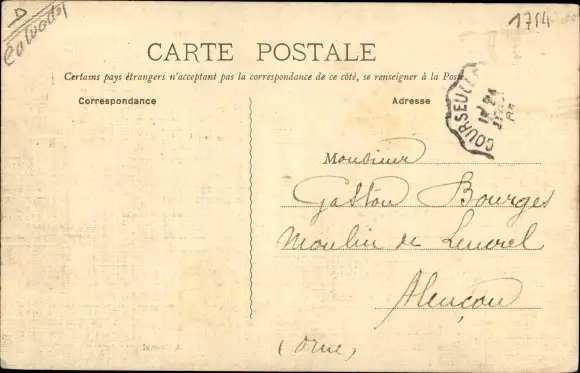 D
Calvados
1754
CARTE POSTALE
Certains pays étrangers n'acceptant pas la correspondance de ce côté, se renseigner à la Poste
Correspondance
Adresse
COURSEULL
Monsieur
Gaston Bourges
Moulin de
Alençon
(Orne)